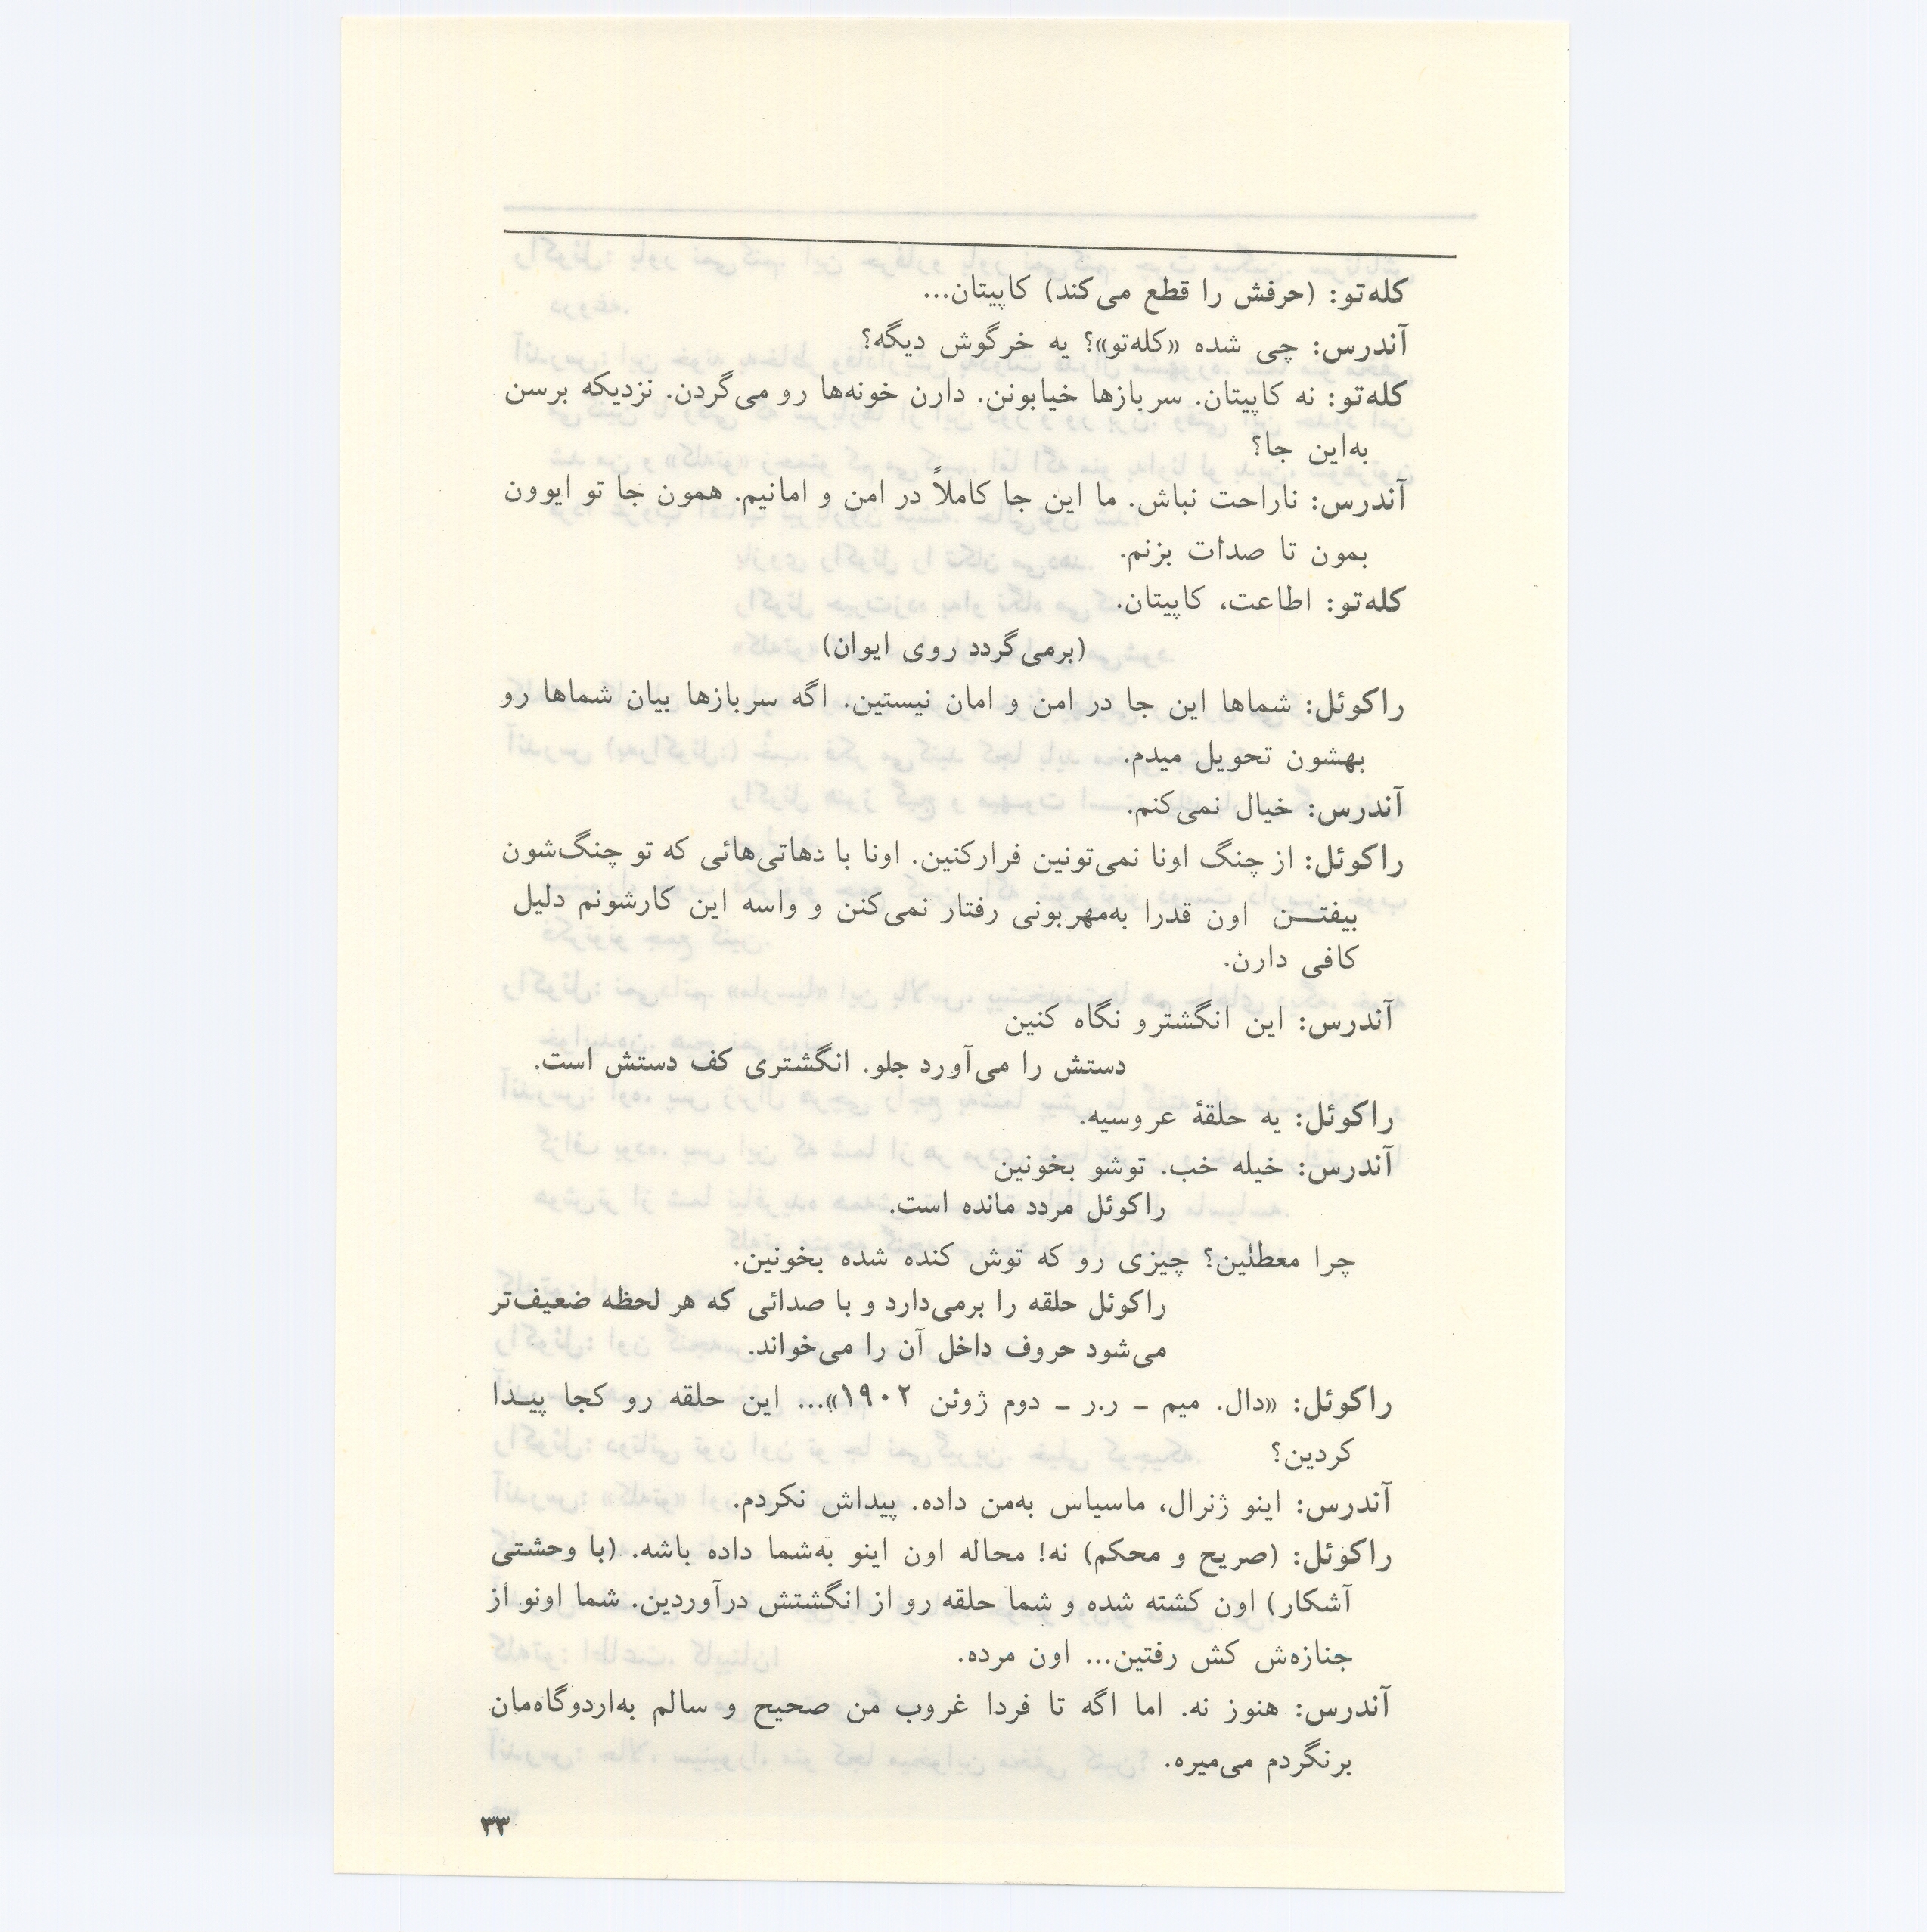 کله‌تو: (حرفش را قطع می‌کند) کاپیتان...
آندرس: چی شده «کله‌تو»؟ یه خرگوش دیگه؟
کله‌تو: نه کاپیتان. سربازها خیابونن. دارن خونه‌ها رو می‌گردن. نزدیکه برسن
به‌این جا؟
آندرس: ناراحت نباش. ما این جا کاملاً در امن و امانیم. همون جا تو ایوون
بمون تا صدات بزنم.
کله‌تو: اطاعت، کاپیتان.
(برمی‌گردد روی ایوان)
راکوئل: شماها این جا در امن و امان نیستین. اگه سربازها بیان شماها رو
بهشون تحویل میدم.
آندرس: خیال نمی‌کنم.
راکوئل: از چنگ اونا نمی‌تونین فرارکنین. اونا با دهاتی‌هائی که تو چنگ‌شون
بیفتـــن اون قدرا به‌مهربونی رفتار نمی‌کنن و واسه این کارشونم دلیل
کافی دارن.
آندرس: این انگشترو نگاه کنین
دستش را می‌آورد جلو. انگشتری کف دستش است.
راکوئل: یه حلقهٔ عروسیه.
آندرس: خیله خب. توشو بخونین
راکوئل مردد مانده است.
چرا معطلین؟ چیزی رو که توش کنده شده بخونین.
راکوئل حلقه را برمی‌دارد و با صدائی که هر لحظه ضعیف‌تر
می‌شود حروف داخل آن را می‌خواند.
راکوئل: «دال. میم ــ ر.ر ــ دوم ژوئن ۱۹۰۲»... این حلقه رو کجا پیـدا
کردین؟
آندرس: اینو ژنرال، ماسیاس به‌من داده. پیداش نکردم.
راکوئل: (صریح و محکم) نه! محاله اون اینو به‌شما داده باشه. (با وحشتی
آشکار) اون کشته شده و شما حلقه رو از انگشتش درآوردین. شما اونو از
جنازه‌ش کش رفتین... اون مرده.
آندرس: هنوز نه. اما اگه تا فردا غروب من صحیح و سالم به‌اردوگاه‌مان
برنگردم می‌میره.
۳۳